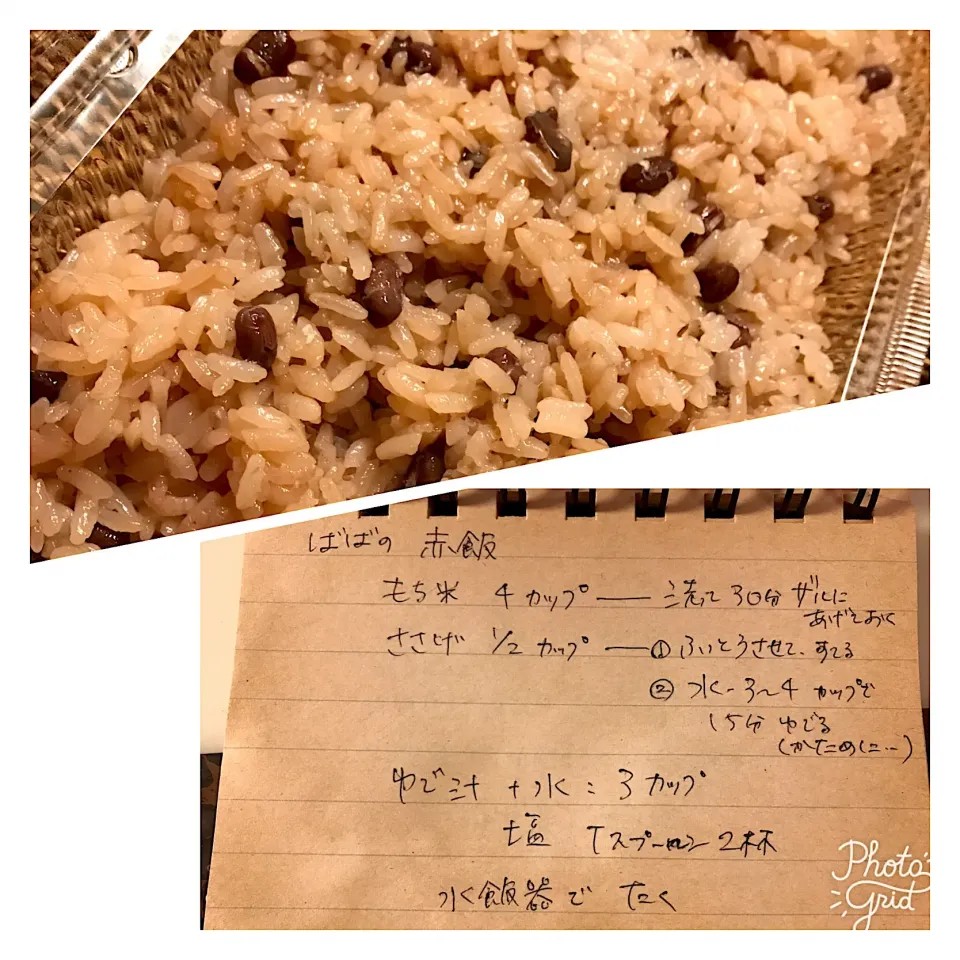 ばばの 赤飯
もち米 4カップ ― 洗って30分 ザルに
あげておく
ささげ 1/2カップ ― ①ふっとうさせて、すてる
② 水-3~4カップで
15分 ゆでる
(かために…)
ゆで汁 + 水 : 3カップ
塩 Tスプーン2杯
飯器で たく
Photo
Grid